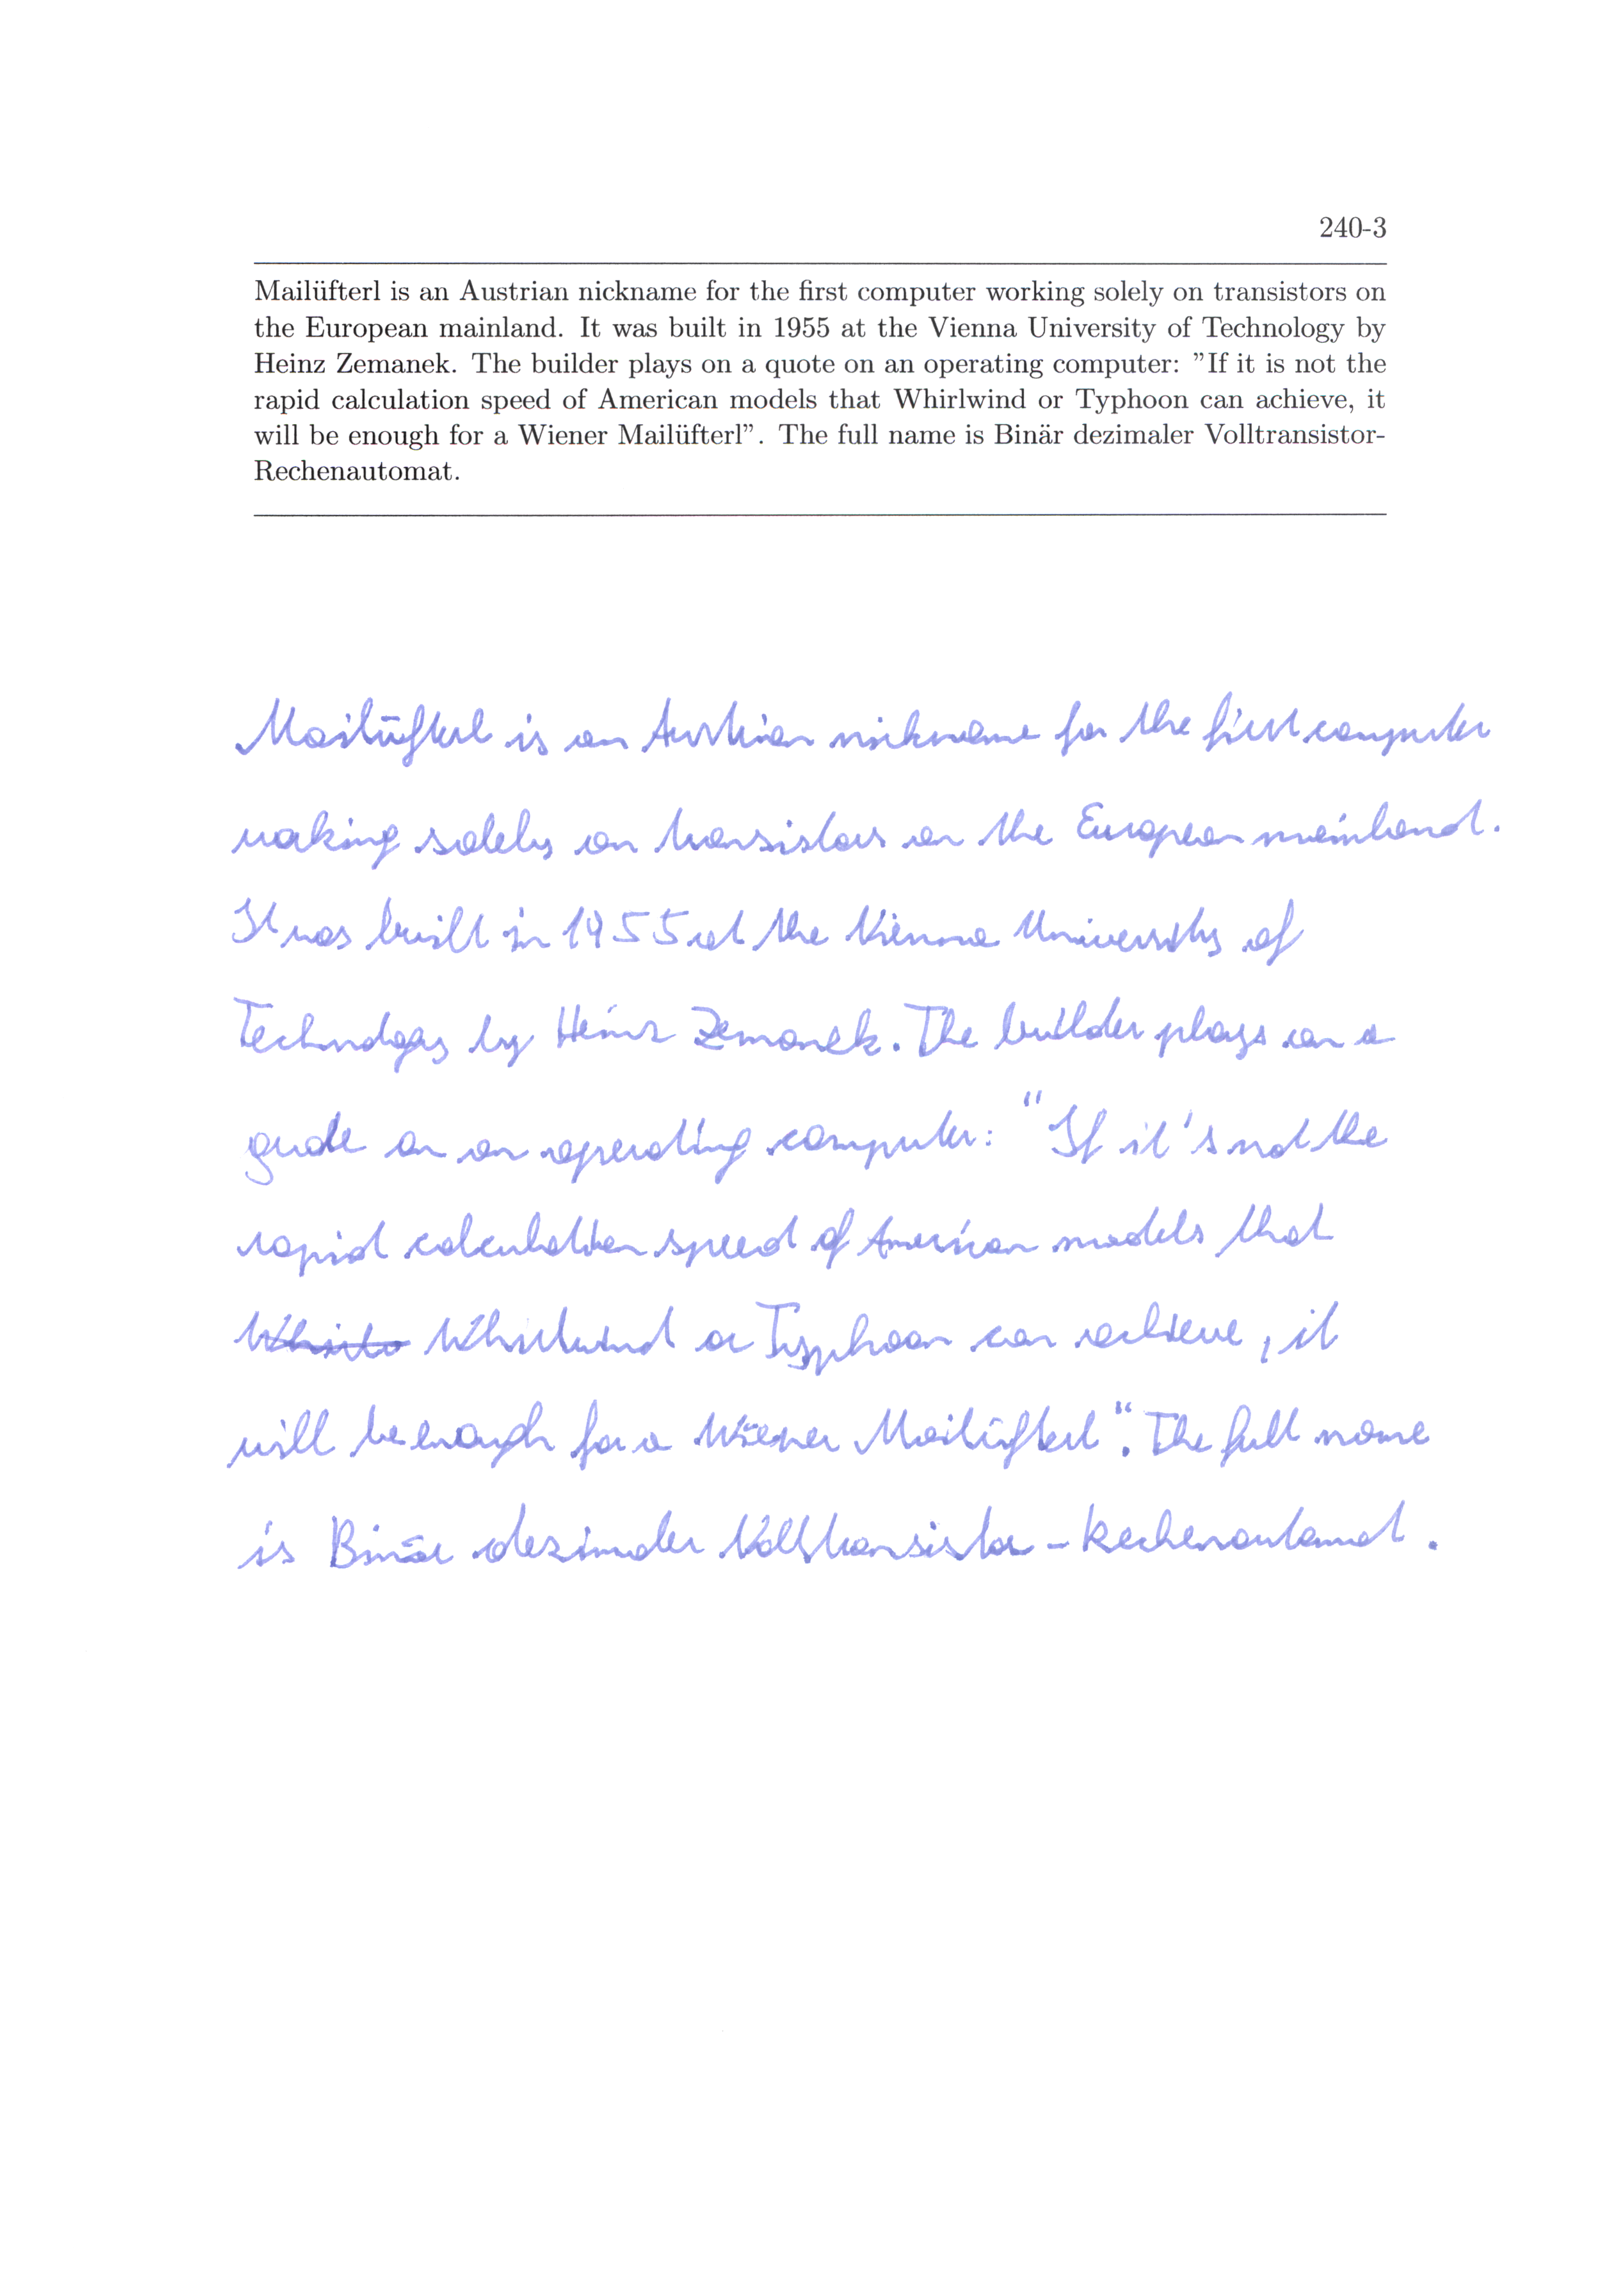 240-3
Mailüfterl is an Austrian nickname for the first computer working solely on transistors on
the European mainland. It was built in 1955 at the Vienna University of Technology by
Heinz Zemanek. The builder plays on a quote on an operating computer: ”If it is not the
rapid calculation speed of American models that Whirlwind or Typhoon can achieve, it
will be enough for a Wiener Mailüfterl”. The full name is Binär dezimaler Volltransistor-
Rechenautomat.
Mailüfterl is an Austrian nickname for the first computer
working solely on transistors on the European mainland.
It was built in 1955 at the Vienna University of
Technology by Heinz Zemanek. The builder plays on a
quote on an operating computer: "If it's not the
rapid calculation speed of American models that
Whirlwind or Typhoon can achieve, it
will be enough for a Wiener Mailüfterl“. The full name
is Binär dezimaler Volltransistor-Rechenautomat.